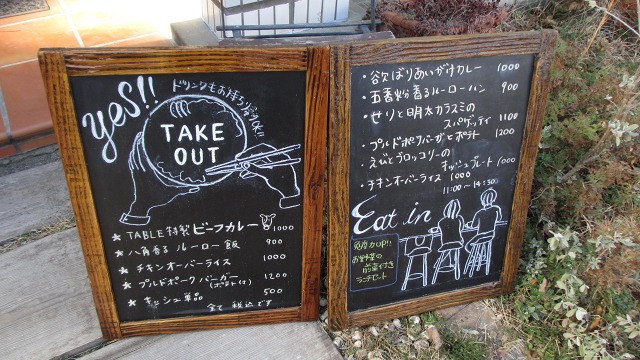 yes!!
ドリンクもお持ち帰りOK!!
TAKE
OUT
★ TABLE特製 ビーフカレー 1000
★ 八角香る ルーロー飯 900
★ チキンオーバーライス 1000
★ プルドポークバーガー (ポテト付) 1200
★ キッシュ単品 500
全て 税込です
・欲ばりあいがけカレー 1000
・五香粉香るルーローハン 900
・せりと明太カラスミの
スパゲッティ 1100
・プルドポークバーガとポテト 1200
・えびとブロッコリーの
キッシュプレート 1000
・チキンオーバーライス 1000
11:00〜14:30
Eat in
免疫力UP!!
お野菜の
前菜付き
ランチセット